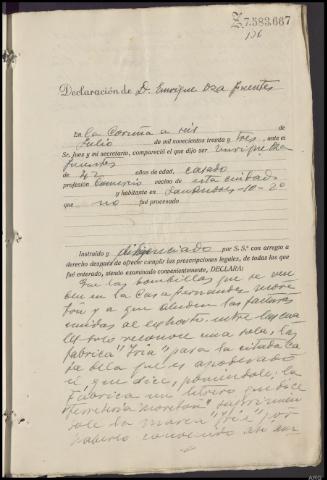 Z.7.583.667
136
Declaración de D. Enrique Oza Fuentes
En La Coruña a seis de
Julio de mil novecientos treinta y tres, ante el
Sr. Juez y mi secretario, compareció el que dijo ser Enrique Oza
Fuentes
de 42 años de edad, casado
profesión Comercio vecino de esta ciudad
y habitante en 10-20
que no fué procesado
Instruído y diligenciado por S. S.ª con arreglo a
derecho después de ofrecer cumplir las prescripciones legales, de todas las que
fué enterado, siendo examinado convenientemente, DECLARA:
Que las bombillas que se ven
den en la Casa Fernandez
y a que aluden las facturas
unidas al exhorto, entre las cua
les solo reconoce una sola, la
fabrica para la citada Ca
sa de la que es apoderado
el que dice, poniéndole la
fábrica un letrero que dice
Ferretería
sole la marca por
haberlo convenido asi con
ARG